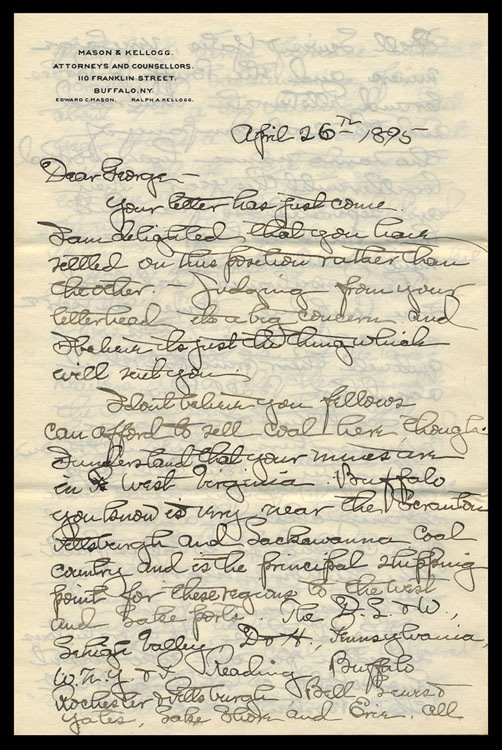 MASON & KELLOGG.
ATTORNEYS AND COUNSELLORS.
110 FRANKLIN STREET.
BUFFALO, N.Y.
EDWARD C. MASON. RALPH A. KELLOGG.
April 26TH 1895
Dear George –
Your letter has just come.
I am delighted that you have
settled on this position rather than
the other. – Judging from your
letterhead its a big concern and
I believe its just the thing which
will suit you.
I dont believe you fellows
can afford to sell coal here though.
I understand that your mines are
in West Virginia. Buffalo
you know is very near the Scranton
Pittsburgh and Lackawanna Coal
country and is the principal shipping
point for these regions to the West
and Lake ports. The D. L. & W.,
Lehigh Valley, D & H., Pennsylvania,
W. N. Y. & P. Reading, Buffalo
Rochester & Pittsburgh Bell Lewis &
Yates, Lake Shore and Erie, all